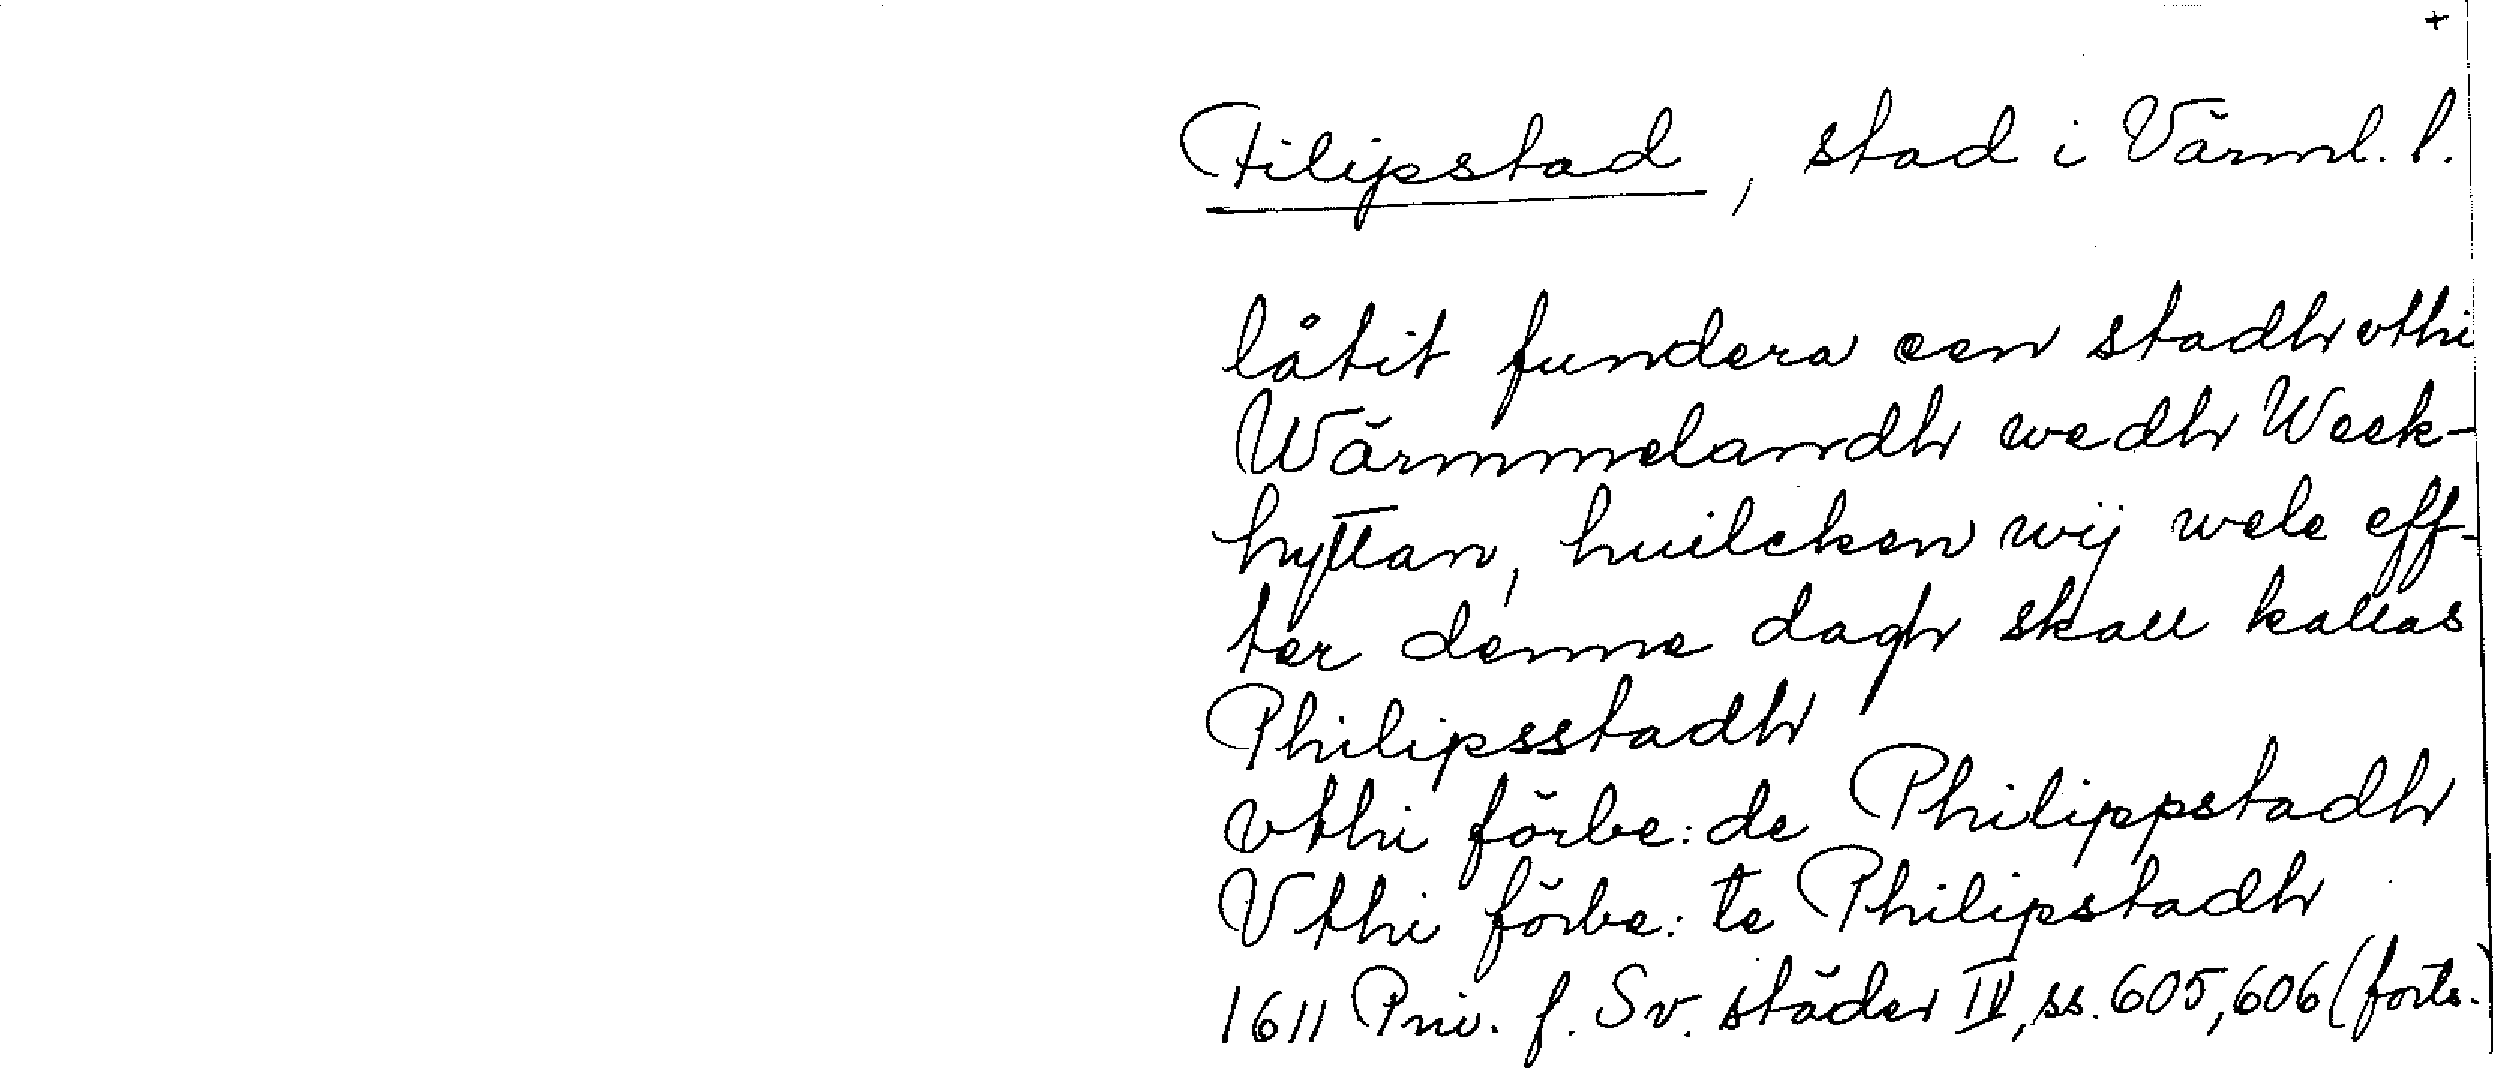 +
Filipstad, stad i Värml. l.
låtit fundera een stadh vthi
Wärmmelandh wedh Week-
hyttan, huilcken wij wele eff-
ter denne dagh skall kallas
Philipsstadh
vthi förbe:de Philippstadh
Vthi förbe:te Philipstadh
1611 Priv. f. Sv. städer II, ss. 605, 606 (forts.)